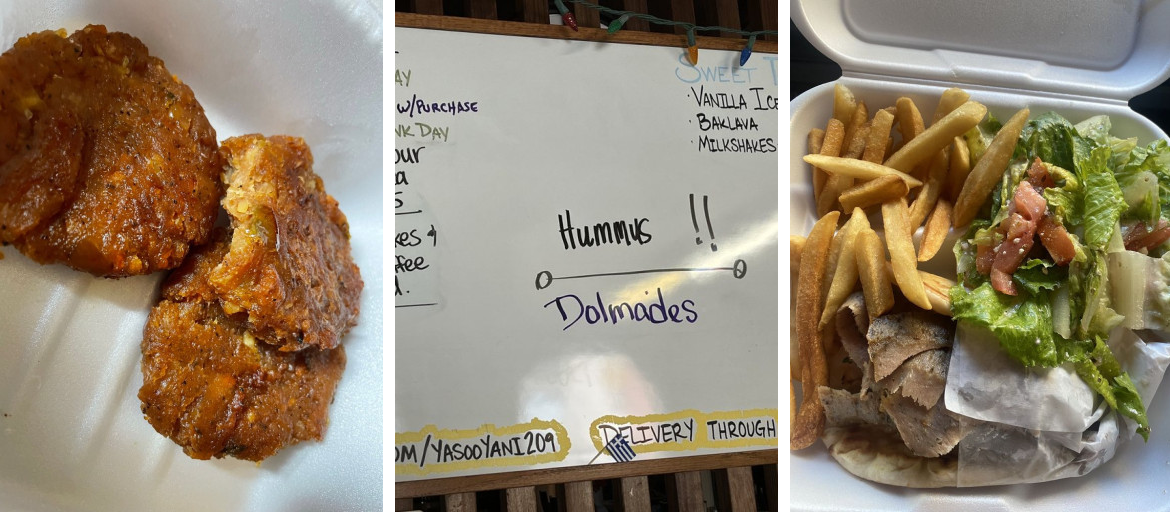 AY
W/PURCHASE
NK DAY
our
a
s
kes &
ffee
d.
SWEET T
· VANILLA ICE
· BAKLAVA
· MILKSHAKES
Hummus !!
Dolmades
OM/YASOOYANI209
DELIVERY THROUGH